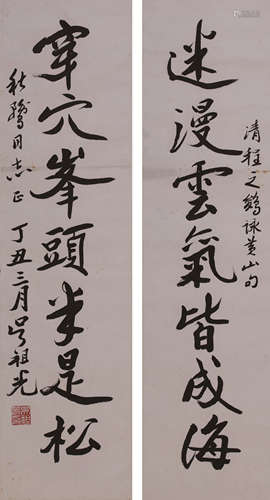 清程之鵕詠黃山句
迷漫雲氣皆成海
穿穴峯頭半是松
秋同志正
丁丑三月吳祖光